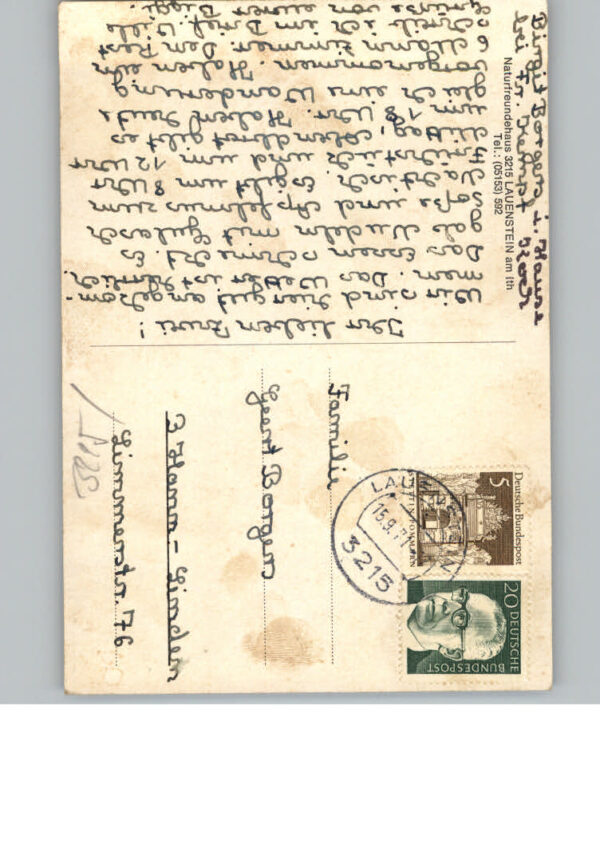 Birgit Borgers i. Hause
bei Fr.
Naturfreundehaus 3215 LAUENSTEIN am Ith
Tel.: (05153) 592
Ihr lieben Zwei!
Wir sind hier gut angekom-
men. Das Wetter ist herrlich.
Das Essen schmeckt. Es
gab Nudeln mit Gulasch
Soße und Apfelmus zum
Nachtisch. Es gibt um 8 Uhr
Frühstück und um 12 Uhr
Mittag, Abendbrot gibt es
um 18 Uhr. Haben heute
gleich eine Wanderung
vorgenommen. Haben ein
6 Mann Zimmer. Den Rest
schreib ich im Brief. Viele
Grüße von eurer Biggi
Familie
Geert Borgers
3 Hann.-Linden
Limmerstr. 76
5
Deutsche Bundespost
STETTIN/POMMERN
20 DEUTSCHE
BUNDESPOST
3215
15.9.71